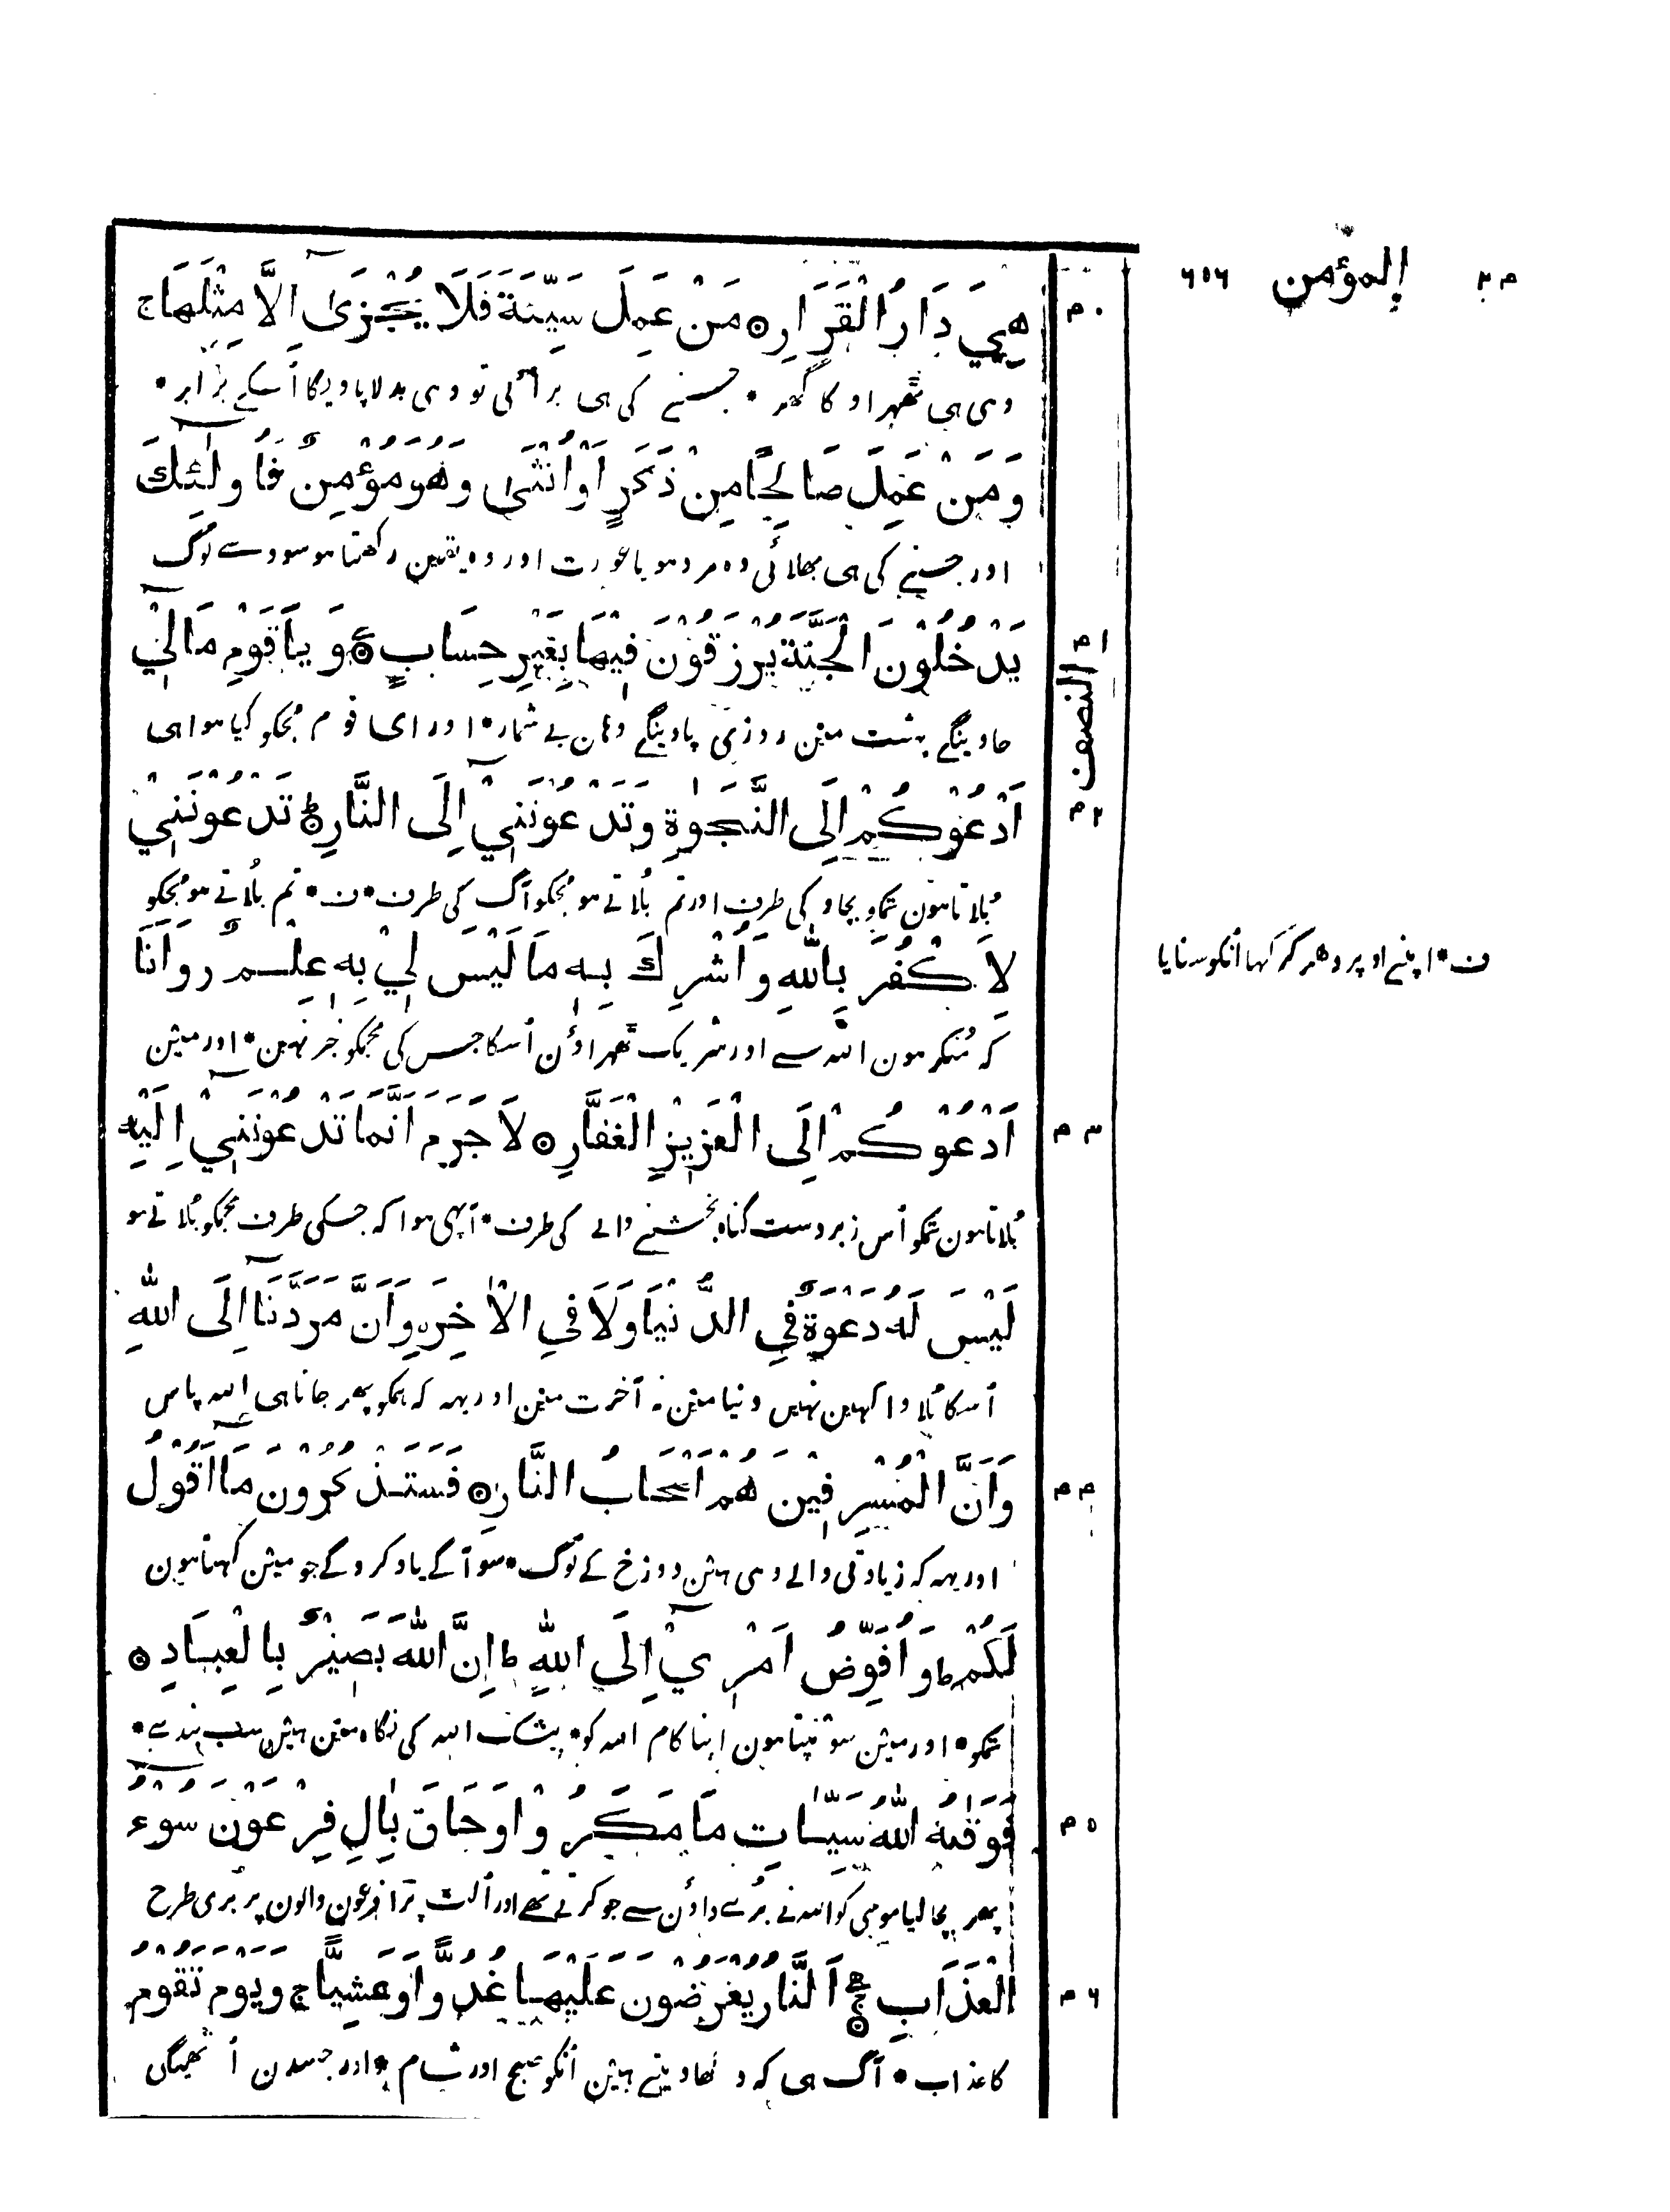 م۲ المؤمن ۶۵۶
م۰
هِيَ دَارُ الْقَرَارِ ۝ مَنْ عَمِلَ سَيِّئَةً فَلَا يُجْزَىٰٓ اِلَّا مِثْلَهَا ج
وہی ہی ٹھہراو کا گھر * جسنے کی ہی برائی تو وہی بدلا پاویگا اُسکے برابر *
وَمَنْ عَمِلَ صَالِحًا مِنْ ذَكَرٍ اَوْ اُنْثَىٰ وَهُوَ مُؤْمِنٌ فَاُولٰٓئِكَ
اور جسنے کی ہی بھلائی وہ مرد ہو یا عورت اور وہ یقین رکھتا ہو سو وے لوگ
يَدْخُلُوْنَ الْجَنَّةَ يُرْزَقُوْنَ فِيْهَا بِغَيْرِ حِسَابٍ ۝ وَيَا قَوْمِ مَا لِيْٓ
م۱
النصف
جاوینگے بہشت مین روزی پاوینگے وہان بے شمار * اور ای قوم مجکو کیا ہوا ہی
اَدْعُوْكُمْ اِلَى النَّجٰوةِ وَتَدْعُوْنَنِيْٓ اِلَى النَّارِ ۝ ط تَدْعُوْنَنِيْ
م۲
بُلاتا ہون تمکو بچاو کی طرف اور تم بُلاتے ہو مُجکو آگ کی طرف * ف * تم بُلاتے ہو مُجکو
لِاَكْفُرَ بِاللّٰهِ وَاُشْرِكَ بِهٖ مَا لَيْسَ لِيْ بِهٖ عِلْمٌ ز وَاَنَا
ف * اپنے اوپر دھر کر کہا اُنکو سنایا
کہ مُنکر ہون اللہ سے اور شریک ٹھہراؤن اُسکا جس کی مجکو خبر نہین * اور مین
اَدْعُوْكُمْ اِلَى الْعَزِيْزِ الْغَفَّارِ ۝ لَا جَرَمَ اَنَّمَا تَدْعُوْنَنِيْٓ اِلَيْهِ
م۳
بُلاتا ہون تمکو اُس زبردست گناہ بخشنے والے کی طرف * آپہی ہوا کہ جسکی طرف مجکو بُلاتے ہو
لَيْسَ لَهُ دَعْوَةٌ فِي الدُّنْيَا وَلَا فِي الْاٰخِرَةِ وَاَنَّ مَرَدَّنَآ اِلَى اللّٰهِ
اُسکا بُلاوا کہین نہین دنیا مین نہ آخرت مین اور یہہ کہ ہمکو پھر جانا ہی اللہ پاس
وَاَنَّ الْمُسْرِفِيْنَ هُمْ اَصْحَابُ النَّارِ ۝ فَسَتَذْكُرُوْنَ مَآ اَقُوْلُ
م۴
اور یہہ کہ زیادتی والے وہی ہین دوزخ کے لوگ * سو آگے یاد کروگے جو مین کہتا ہون
لَكُمْ ط وَاُفَوِّضُ اَمْرِيْٓ اِلَى اللّٰهِ ط اِنَّ اللّٰهَ بَصِيْرٌ بِالْعِبَادِ ۝
تمکو * اور مین سونپتا ہون اپنا کام اللہ کو * بیشک اللہ کی نگاہ مین ہین سب بندے *
فَوَقٰىهُ اللّٰهُ سَيِّاٰتِ مَا مَكَرُوْا وَحَاقَ بِاٰلِ فِرْعَوْنَ سُوْٓءُ
م۵
پھر بچا لیا موسیٰ کو اللہ نے بُرے داؤن سے جو کرتے تھے اور اُلٹ پڑا فرعون والون پر بری طرح
الْعَذَابِ ۝ ج اَلنَّارُ يُعْرَضُوْنَ عَلَيْهَا غُدُوًّا وَّعَشِيًّا ج وَيَوْمَ تَقُوْمُ
م۶
کا عذاب * آگ ہی کہ دکھا دیتے ہین اُنکو صبح اور شام * اور جسدن اُٹھیگی